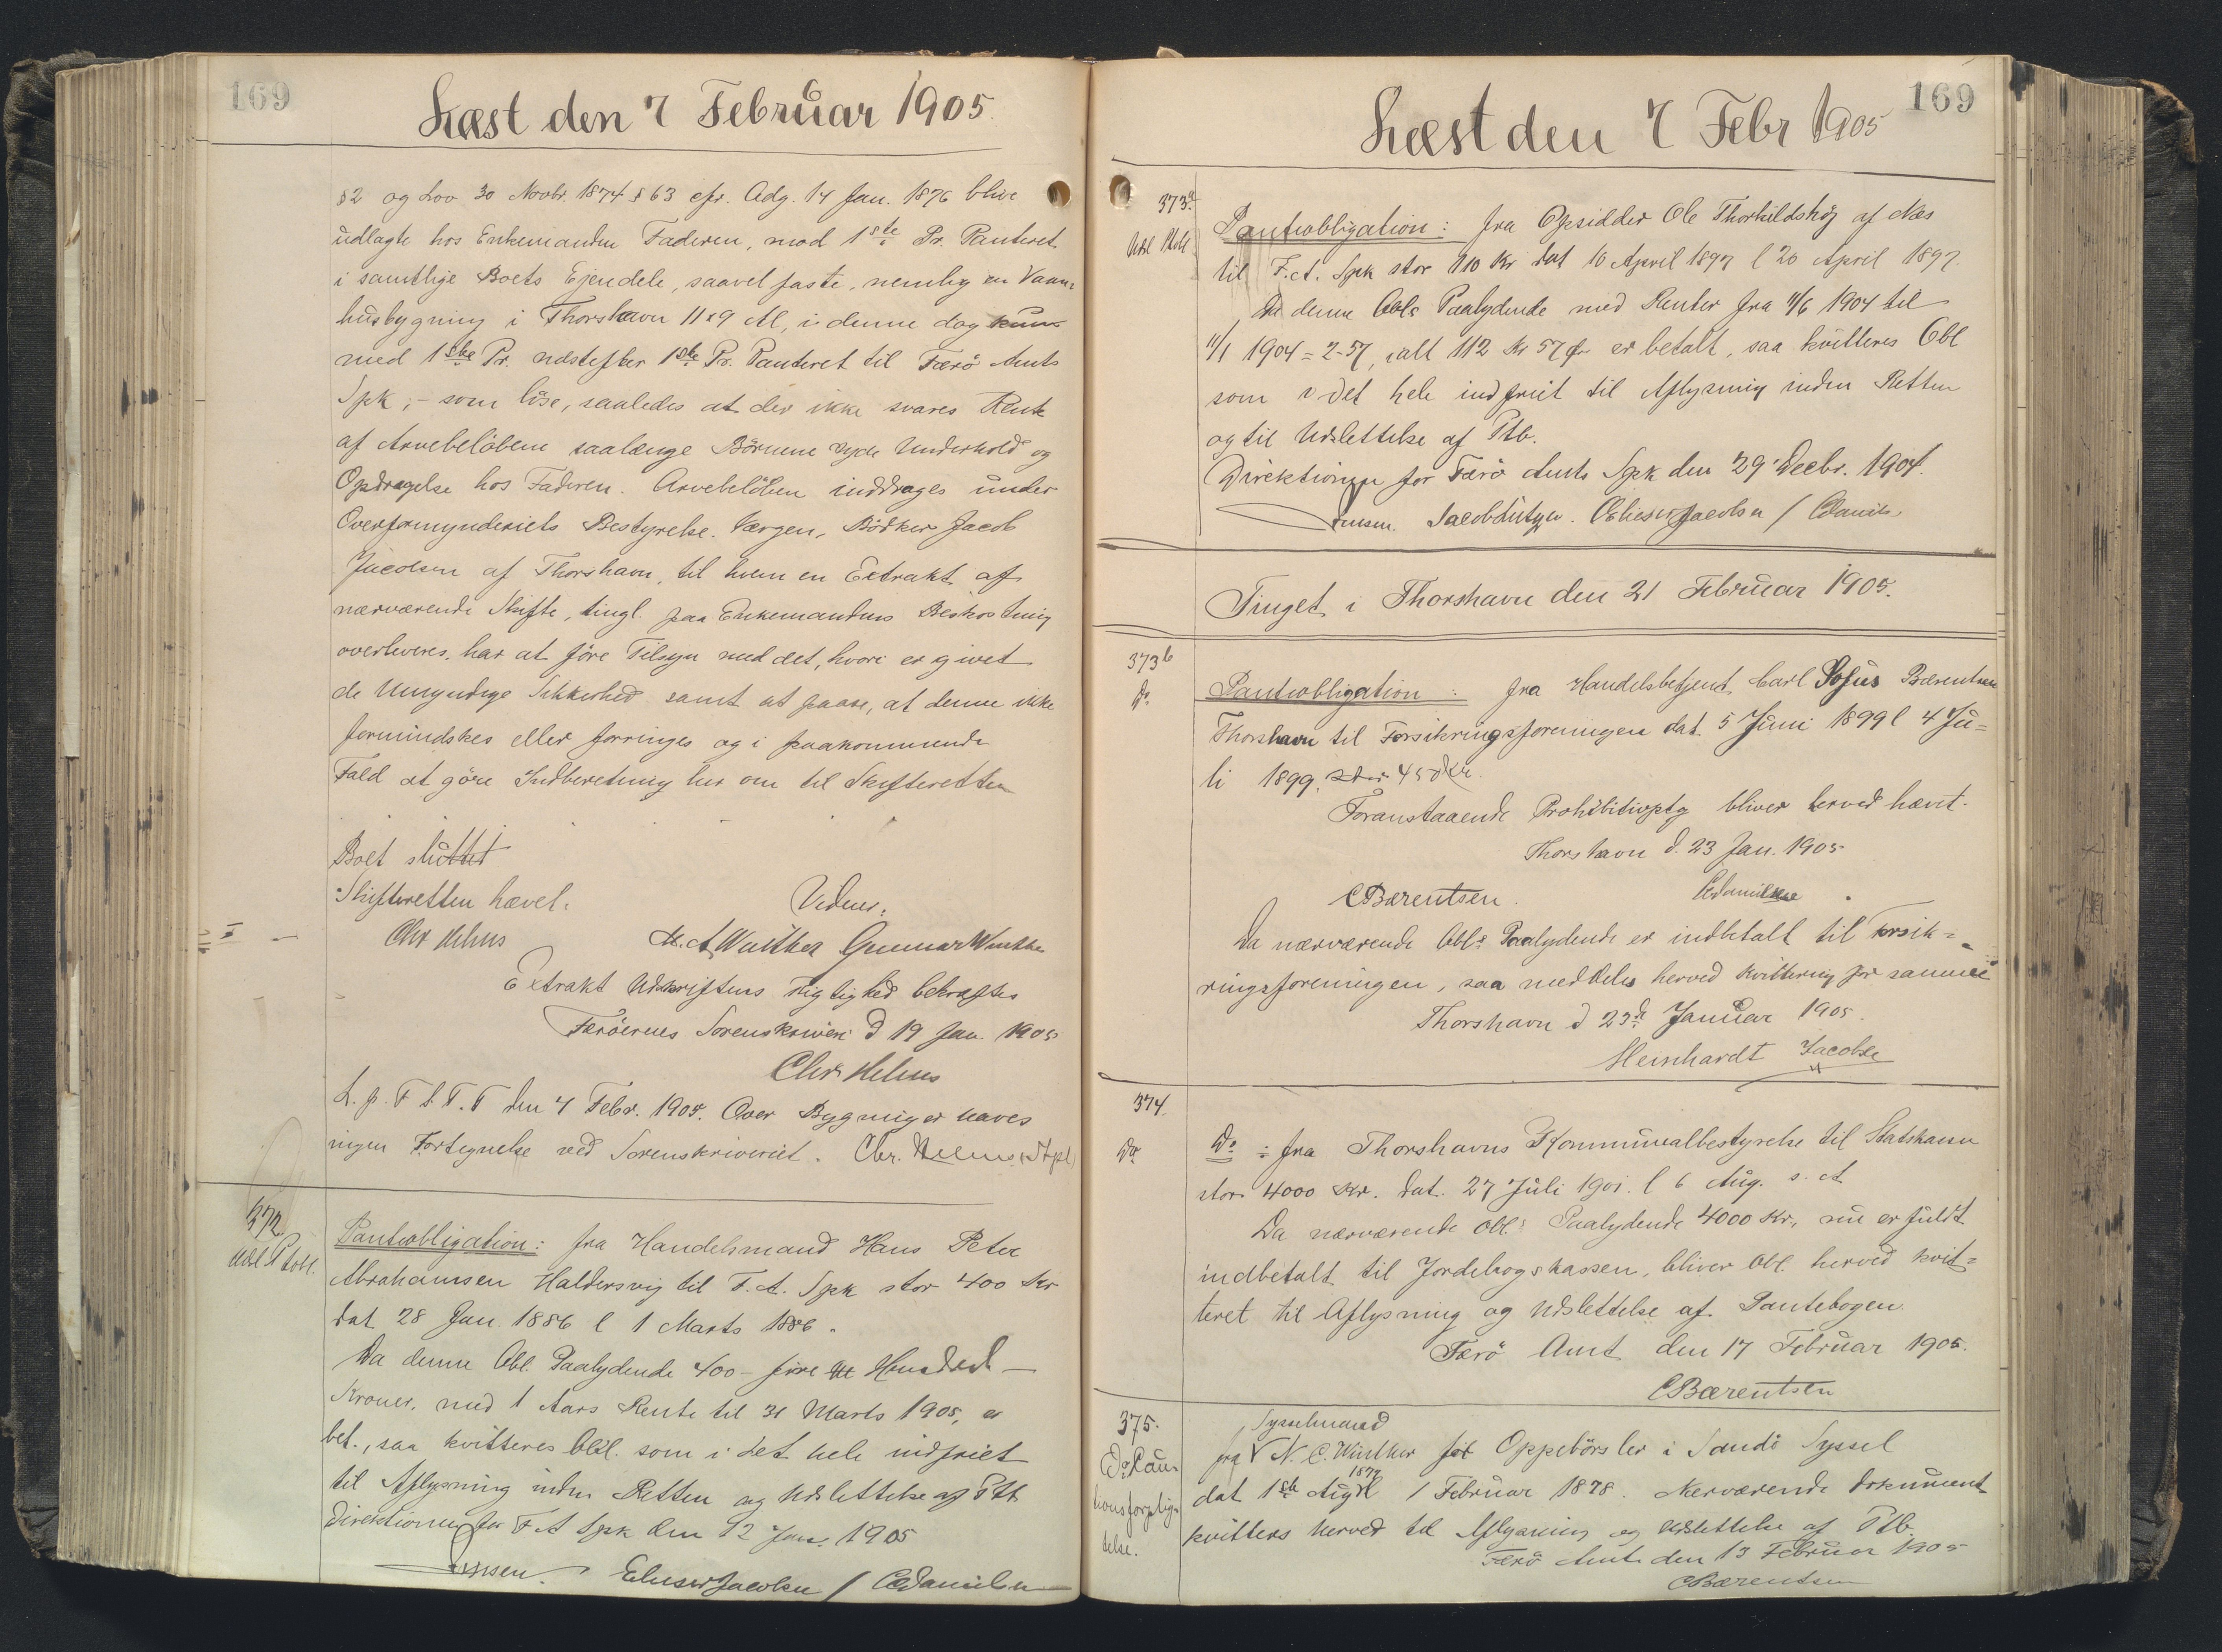 169
Læst den 7 Februar 1905.
§2 og Lov 30 Novbr. 1874 § 63 cfr. Adg. 14 Jan. 1876 blive
udlagte hos Enkemanden Faderen, mod 1ste Pr. Panteret
i samtlige Boets Ejendele, saavel faste, nemlig en Vaan=
husbygning i Thorshavn 11x9 Al, i denne dog kun
med 1ste Pr. næstefter 1ste Pr. Panteret til Færö Amts
Spk, - som löse, saaledes at der ikke svares Rente
af Arvebelöbene saalænge Börnene nyde Underhold og
Opdragelse hos Faderen. Arvebelöbene inddrages under
Overformynderiets Bestyrelse. Værgen, Bödker Jacob
Jacobsen af Thorshavn, til hvem en Extrakt af
nærværende Skifte, tingl. paa Enkemandens Bekostning
overleveres, har at före Tilsyn med det, hvori er givet
de Umyndige Sikkerhed samt at paase, at denne ikke
formindskes eller forringes og i paakommende
Fald at göre Indberetning her om til Skifteretten
Boet sluttet
Skifteretten hævet.
Vidner:
Chr Helms
M. A. Winther Gunnar Winther
Extrakt Udskriftens Rigtighed bekræftes
Færöernes Sorenskriveri d 19 Jan. 1905
Chr. Helms
L. p. F S. T. T den 7 Febr. 1905. Over Bygninger haves
ingen Fortegnelse ved Sorenskriveriet. Chr. Helms
372
Pantobligation: fra Handelsmand Hans Peter
Abrahamsen Haldersvig til F. A. Spk stor 400 Kr
dat 28 Jan. 1886 l 1 Marts 1886.
Da denne Obl. Paalydende 400 - fire Hundrede -
Kroner, med 1 Aars Rente til 31 Marts 1905, er
bet., saa kvitteres Obl. som i det hele indfriet
til Aflysning inden Retten og Udslettelse af Ptb
Direktionen for F A Spk den 12 Jan. 1905
Jensen. Elieser Jacobsen / CDanielsen
169
Læst den 7 Febr 1905
373a
Pantobligation: fra Opsidder Ole Thorkildshöj af Næs
til F. A. Spk stor 110 Kr dat 10 April 1897 l 20 April 1897.
Da denne Obls Paalydende med Renter fra 11/6 1904 til
11/1 1904 = 2-57, ialt 112 Kr 57 Ø er betalt, saa kvitteres Obl
som i det hele indfriet til Aflysning inden Retten
og til Udslettelse af Ptb.
Direktionen for Færö Amts Spk den 29 Decbr. 1904.
Jensen. Jacob Lützen. Elieser Jacobsen / CDanielsen
Tinget i Thorshavn den 21 Februar 1905.
373b
Do
Pantobligation: fra Handelsbetjent Carl Sofus Bærentsen
Thorshavn til Forsikringsforeningen dat. 5 Juni 1899 l 4 Ju=
li 1899. stor 450 Kr.
Foranstaaende Prohibitivptg bliver herved hævet.
Thorshavn d. 23 Jan. 1905
CBærentsen. CDanielsen
Da nærværende Obls Paalydende er indbetalt til Forsik=
ringsforeningen, saa meddeles herved Kvittering for samme
Thorshavn d 23d Januar 1905.
Meinhardt Jacobsen
374.
Do
Do : fra Thorshavns Kommunalbestyrelse til Statskassen
stor 4000 Kr. dat. 27 Juli 1901. l 6 Aug. s. A
Da nærværende Obl.s Paalydende 4000 Kr, nu er fuldt
indbetalt til Jordebogskassen, bliver Obl herved kvit=
teret til Aflysning og Udslettelse af Pantebogen.
Færö Amt den 17 Februar 1905.
CBærentsen
375.
Do Kau=
tionsforplig=
telse.
Sysselmand
fra N. C. Winther for Oppebörsler i Sandö Syssel
dat 1ste Aug 1877 l 1 Februar 1878. Nærværende Dokument
kvitteres herved til Aflysning og Udslettelse af Ptb.
Færö Amt den 13 Februar 1905
CBærentsen